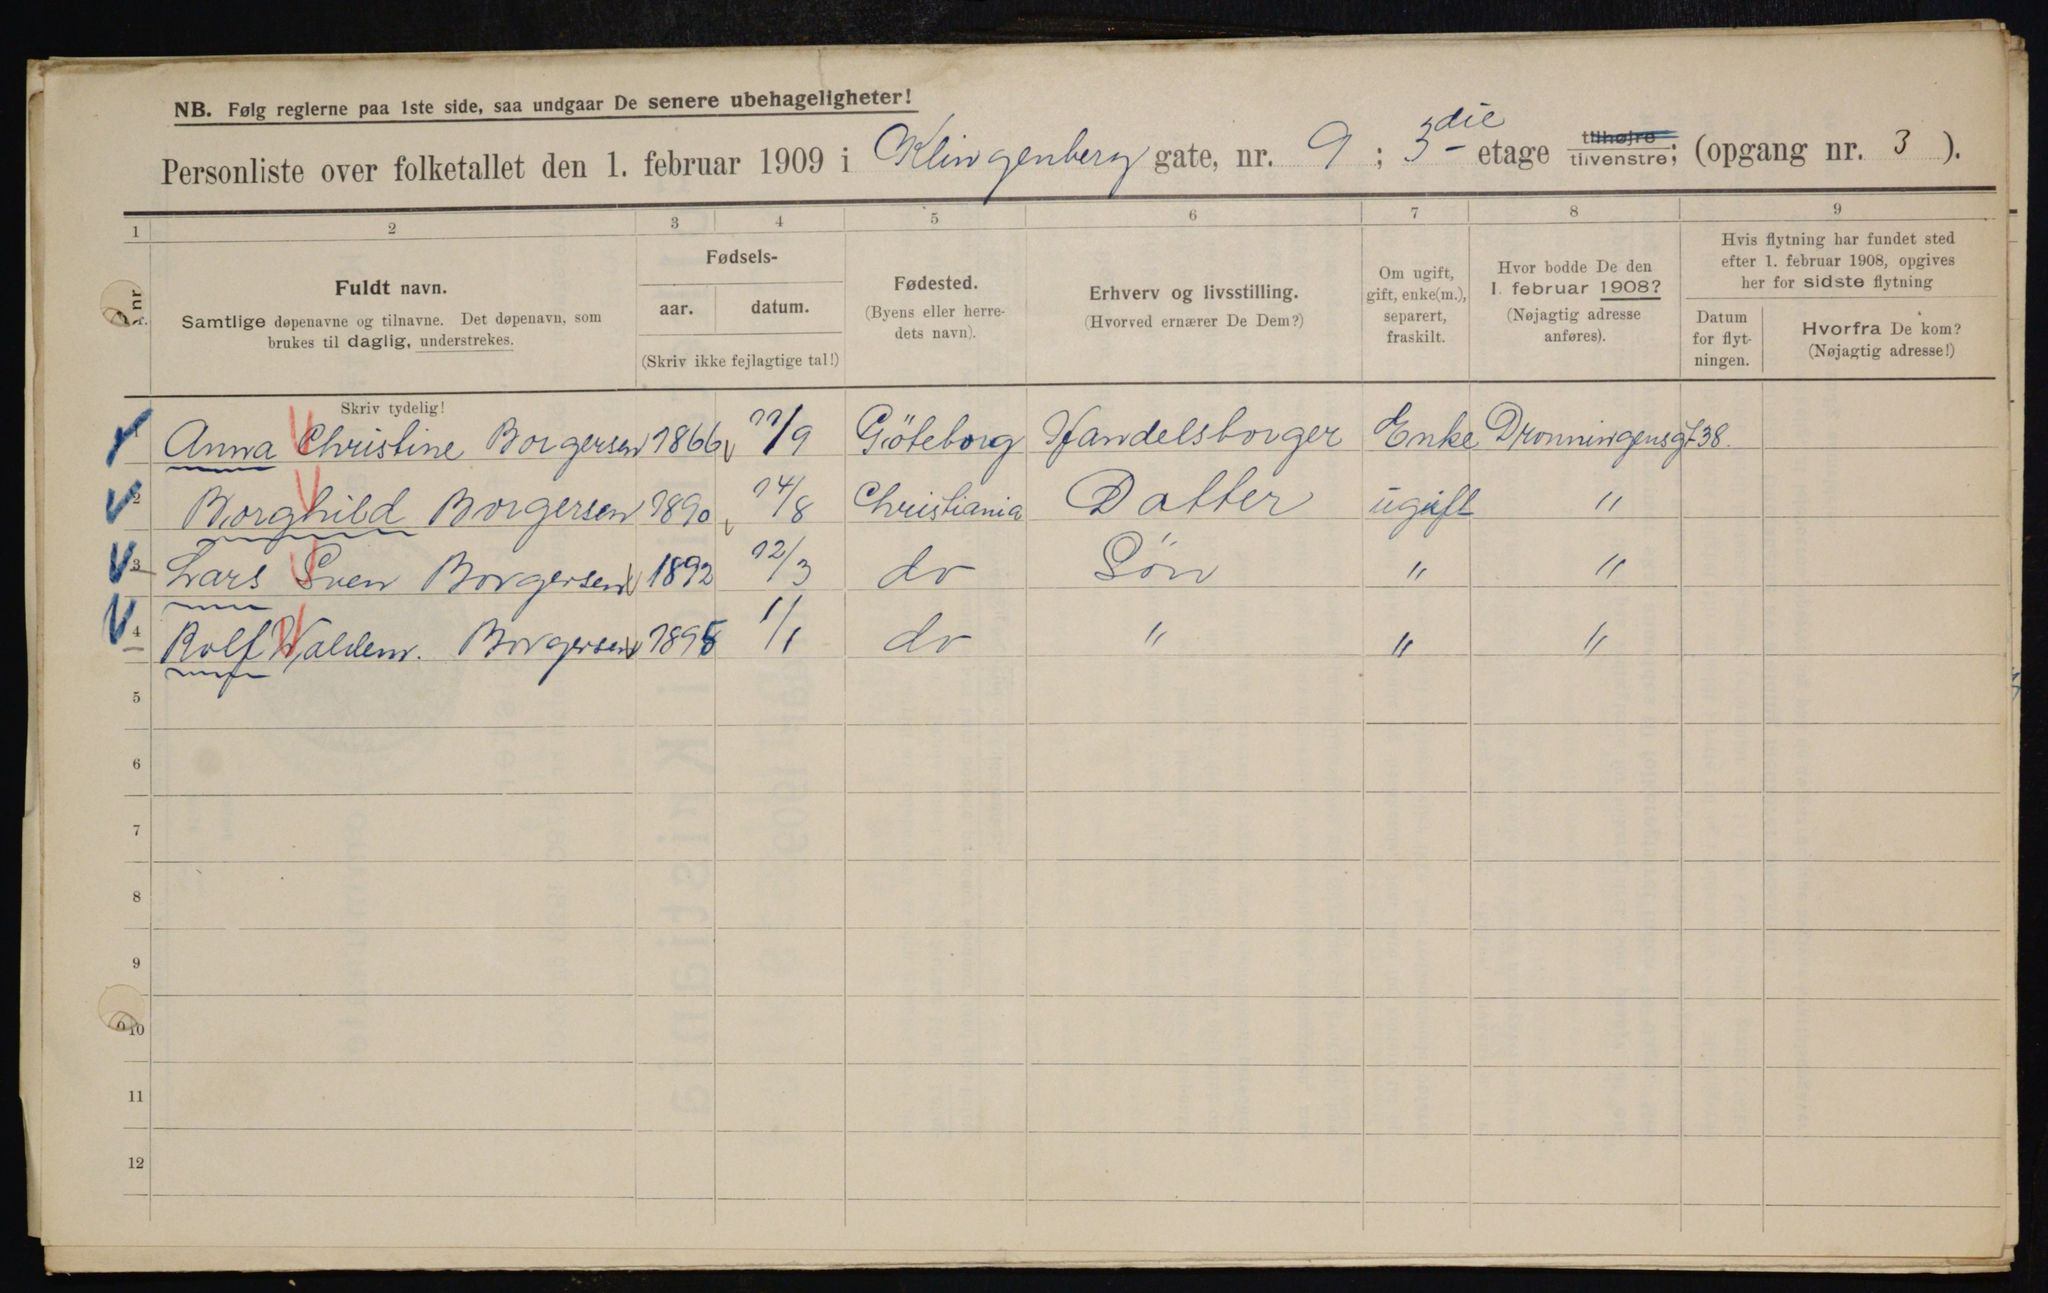 NB. Følg reglerne paa 1ste side, saa undgaar De senere ubehageligheter!
Personliste over folketallet den 1. februar 1909 i Klingenberg gate, nr. 9 ; 3die etage tilhøjre tilvenstre; (opgang nr. 3 ).
1 2 3 4 5 6 7 8 9
nr.
Fuldt navn.
Samtlige døpenavne og tilnavne. Det døpenavn, som
brukes til daglig, understrekes.
Fødsels-
aar. datum.
(Skriv ikke fejlagtige tal!)
Fødested.
(Byens eller herre-
dets navn).
Erhverv og livsstilling.
(Hvorved ernærer De Dem?)
Om ugift,
gift, enke(m.),
separert,
fraskilt.
Hvor bodde De den
1. februar 1908?
(Nøjagtig adresse
anføres).
Hvis flytning har fundet sted
efter 1. februar 1908, opgives
her for sidste flytning
Datum
for flyt-
ningen.
Hvorfra De kom?
(Nøjagtig adresse!)
Skriv tydelig!
Anna Christine Borgersen 1866 /9 Göteborg Handelsborger Enke Dronningensgt 38.
2 Borghild Borgersen 1890 14/8 Christiania Datter ugift "
3 Lars Sven Borgersen 1892 12/3 do Sön " "
4 Rolf Waldem. Borgersen 1895 1/1 do " " "
5
6
7
8
9
10
11
12